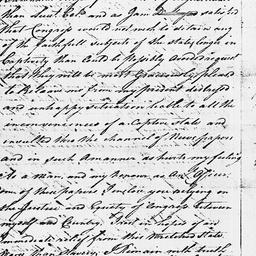 than
that Congress would not wish to detain any
of the faithfull subjects of the states longer in
Captivity than could be possibly avoided request
that they will be most Graciously pleased
to Retain me from my present distressed
and unhappy situation liable to all the
inconveniences of a Captive State and
insulted thro the channel of Newspapers
and in such a manner as hurts my feelings
as a man, and my honour as an Officer.
one of this papers I enclose you relying on
the Justice and Equity of Congress between
myself and Country, I rest in hopes of an
immediate relief from this Wretched State
More than Slavery, I Remain with truth